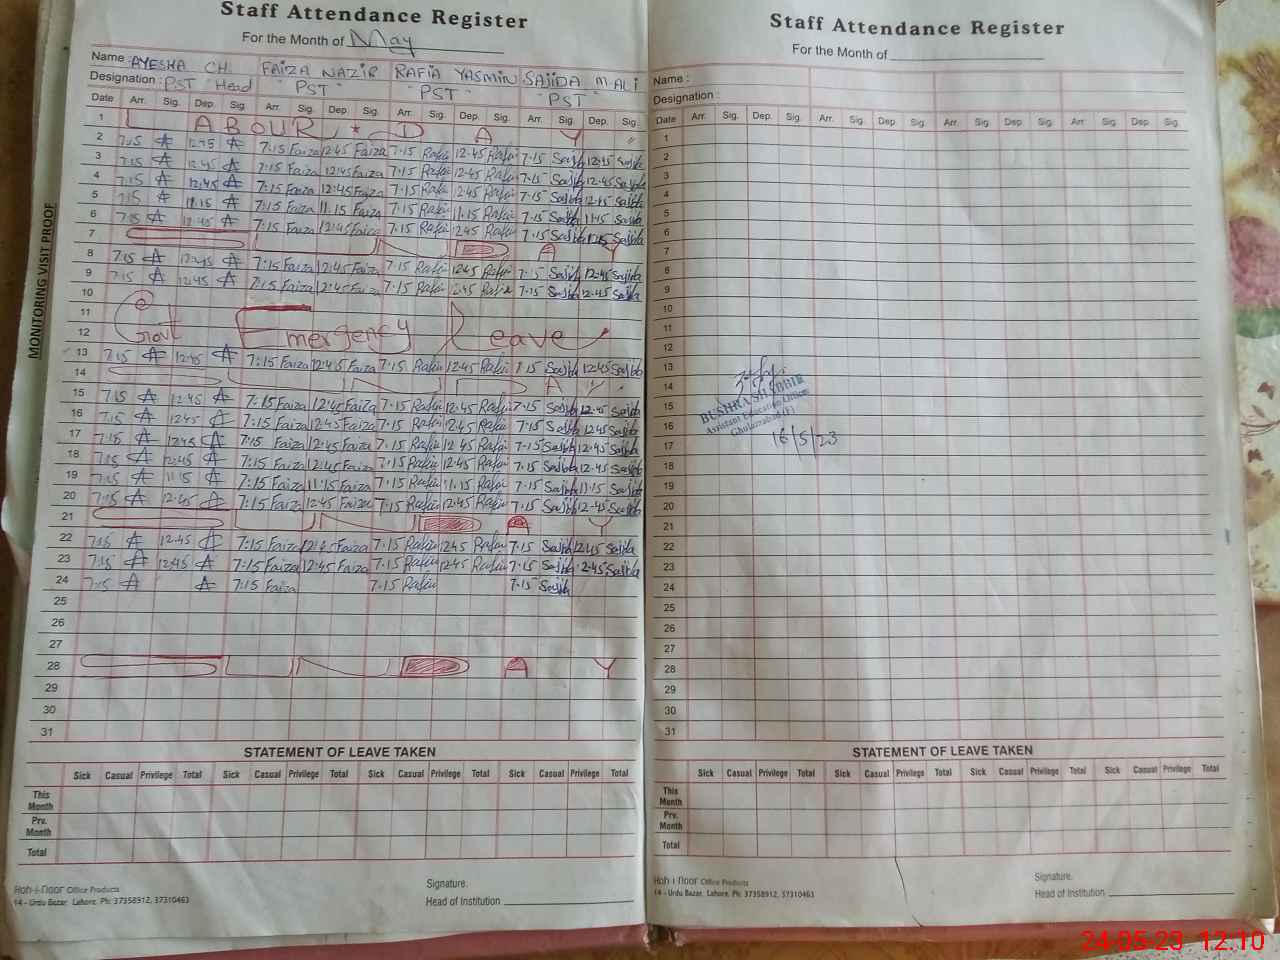 Staff Attendance Register
For the Month of May
Name : AYESHA CH. FAIZA NAZIR RAFIA YASMIN SAJIDA M.ALI
Designation : PST "Head "PST" "PST" "PST"
Date Arr. Sig. Dep. Sig. Arr. Sig. Dep. Sig. Arr. Sig. Dep. Sig. Arr. Sig. Dep. Sig.
1 LABOUR DAY
2 7:15 12:45 7:15 Faiza 12:45 Faiza 7.15 Rafia 12.45 Rafia 7.15 Sajida 12.45 Sajida
3 7:15 12:45 7:15 Faiza 12:45 Faiza 7.15 Rafia 12.45 Rafia 7.15 Sajida 12.45 Sajida
4 7:15 12:45 7:15 Faiza 12:45 Faiza 7.15 Rafia 12.45 Rafia 7.15 Sajida 12.45 Sajida
5 7:15 11:15 7:15 Faiza 11.15 Faiza 7.15 Rafia 11.15 Rafia 7.15 Sajida 11.15 Sajida
6 7:15 12:45 7:15 Faiza 12:45 Faiza 7.15 Rafia 12.45 Rafia 7.15 Sajida 12.45 Sajida
7 SUNDAY
8 7:15 12:45 7:15 Faiza 12:45 Faiza 7.15 Rafia 12.45 Rafia 7.15 Sajida 12.45 Sajida
9 7:15 12:45 7:15 Faiza 12:45 Faiza 7.15 Rafia 12.45 Rafia 7.15 Sajida 12.45 Sajida
10
11
Govt Emergency Leave
12
13 7:15 12:45 7:15 Faiza 12:45 Faiza 7.15 Rafia 12.45 Rafia 7.15 Sajida 12.45 Sajida
14 SUNDAY
15 7:15 12:45 7:15 Faiza 12:45 Faiza 7.15 Rafia 12.45 Rafia 7.15 Sajida 12.45 Sajida
16 7:15 12:45 7:15 Faiza 12:45 Faiza 7.15 Rafia 12.45 Rafia 7.15 Sajida 12.45 Sajida
17 7:15 12:45 7:15 Faiza 12:45 Faiza 7.15 Rafia 12.45 Rafia 7.15 Sajida 12.45 Sajida
18 7:15 12:45 7:15 Faiza 12:45 Faiza 7.15 Rafia 12.45 Rafia 7.15 Sajida 12.45 Sajida
19 7:15 11:15 7:15 Faiza 11:15 Faiza 7.15 Rafia 11.15 Rafia 7.15 Sajida 11.15 Sajida
20 7:15 12:45 7:15 Faiza 12:45 Faiza 7.15 Rafia 12.45 Rafia 7.15 Sajida 12.45 Sajida
21 SUNDAY
22 7:15 12:45 7:15 Faiza 12:45 Faiza 7.15 Rafia 12.45 Rafia 7.15 Sajida 12.45 Sajida
23 7:15 12:45 7:15 Faiza 12:45 Faiza 7.15 Rafia 12.45 Rafia 7.15 Sajida 12.45 Sajida
24 7:15 7:15 Faiza 7.15 Rafia 7.15 Sajida
25
26
27
28 SUNDAY
29
30
31
STATEMENT OF LEAVE TAKEN
Sick Casual Privilege Total Sick Casual Privilege Total Sick Casual Privilege Total Sick Casual Privilege Total
This Month
Prv. Month
Total
Koh-i-noor Office Products
14 - Urdu Bazar, Lahore. Ph: 37358912, 37310463
Signature.
Head of Institution
MONITORING VISIT PROOF
Staff Attendance Register
For the Month of
Name :
Designation :
Date Arr. Sig. Dep. Sig. Arr. Sig. Dep. Sig. Arr. Sig. Dep. Sig. Arr. Sig. Dep. Sig.
1
2
3
4
5
6
7
8
9
10
11
12
13
14
15
16
17
18
19
20
21
22
23
24
25
26
27
28
29
30
31
BUSHRA SHABBIR
Assistant Education Officer
16/5/23
STATEMENT OF LEAVE TAKEN
Sick Casual Privilege Total Sick Casual Privilege Total Sick Casual Privilege Total Sick Casual Privilege Total
This Month
Prv. Month
Total
Koh-i-noor Office Products
14 - Urdu Bazar, Lahore. Ph: 37358912, 37310463
Signature.
Head of Institution
24-05-23 12:10